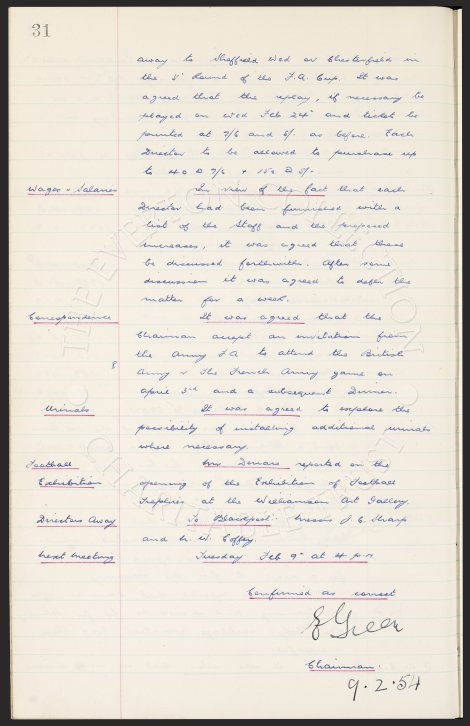 31
away to Sheffield Wed or Chesterfield in
the 5th Round of the F.A. Cup. It was
agreed that the replay, if necessary be
played on Wed Feb 24th and tickets be
printed at 7/6 and 5/- as before. Each
Director to be allowed to purchase up
to 40 @ 7/6 + 150 @ 5/-.
Wages + Salaries In view of the fact that each
Director had been furnished with a
list of the Staff and the proposed
increases, it was agreed that these
be discussed forthwith. After some
discussion it was agreed to defer the
matter for a week.
Correspondence It was agreed that the
Chairman accept an invitation from
the Army F.A. to attend the British
Army v The French Army game on
April 3rd and a subsequent Dinner.
Urinals It was agreed to explore the
possibility of installing additional urinals
where necessary.
Football Mr. reported on the
Exhibition opening of the Exhibition of Football
Trophies at the Williamson Art Gallery.
Directors Away To Blackpool: Messrs J.C. Sharp
and N. W. Coffey.
Next Meeting Tuesday Feb 9th at 4 p.m
Confirmed as correct
E Green
Chairman.
9.2.54
THE EVERTON COLLECTION
CHARITABLE TRUST